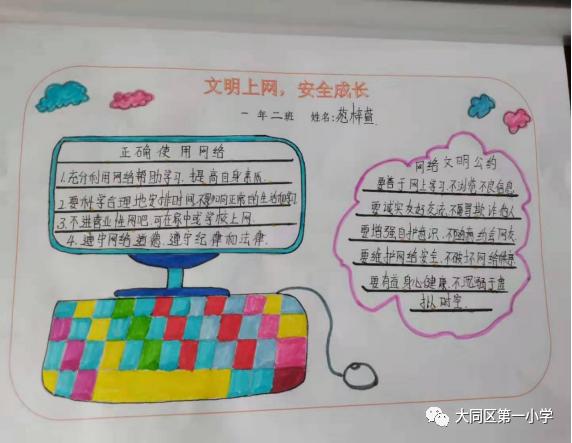 文明上网，安全成长
一 年二班 姓名:范梓萱
正确使用网络
1.充分利用网络帮助学习，提高自身素质.
2.要科学合理地安排时间,不影响正常的生活和学习
3.不进营业性网吧,可在家中或学校上网.
4.遵守网络道德,遵守纪律和法律.
网络文明公约
要善于网上学习,不浏览不良信息.
要诚实友好交流,不辱骂欺诈他人
要增强自护意识,不随意约会网友.
要维护网络安全,不破坏网络秩序.
要有益身心健康,不沉溺虚拟
时空.
大同区第一小学